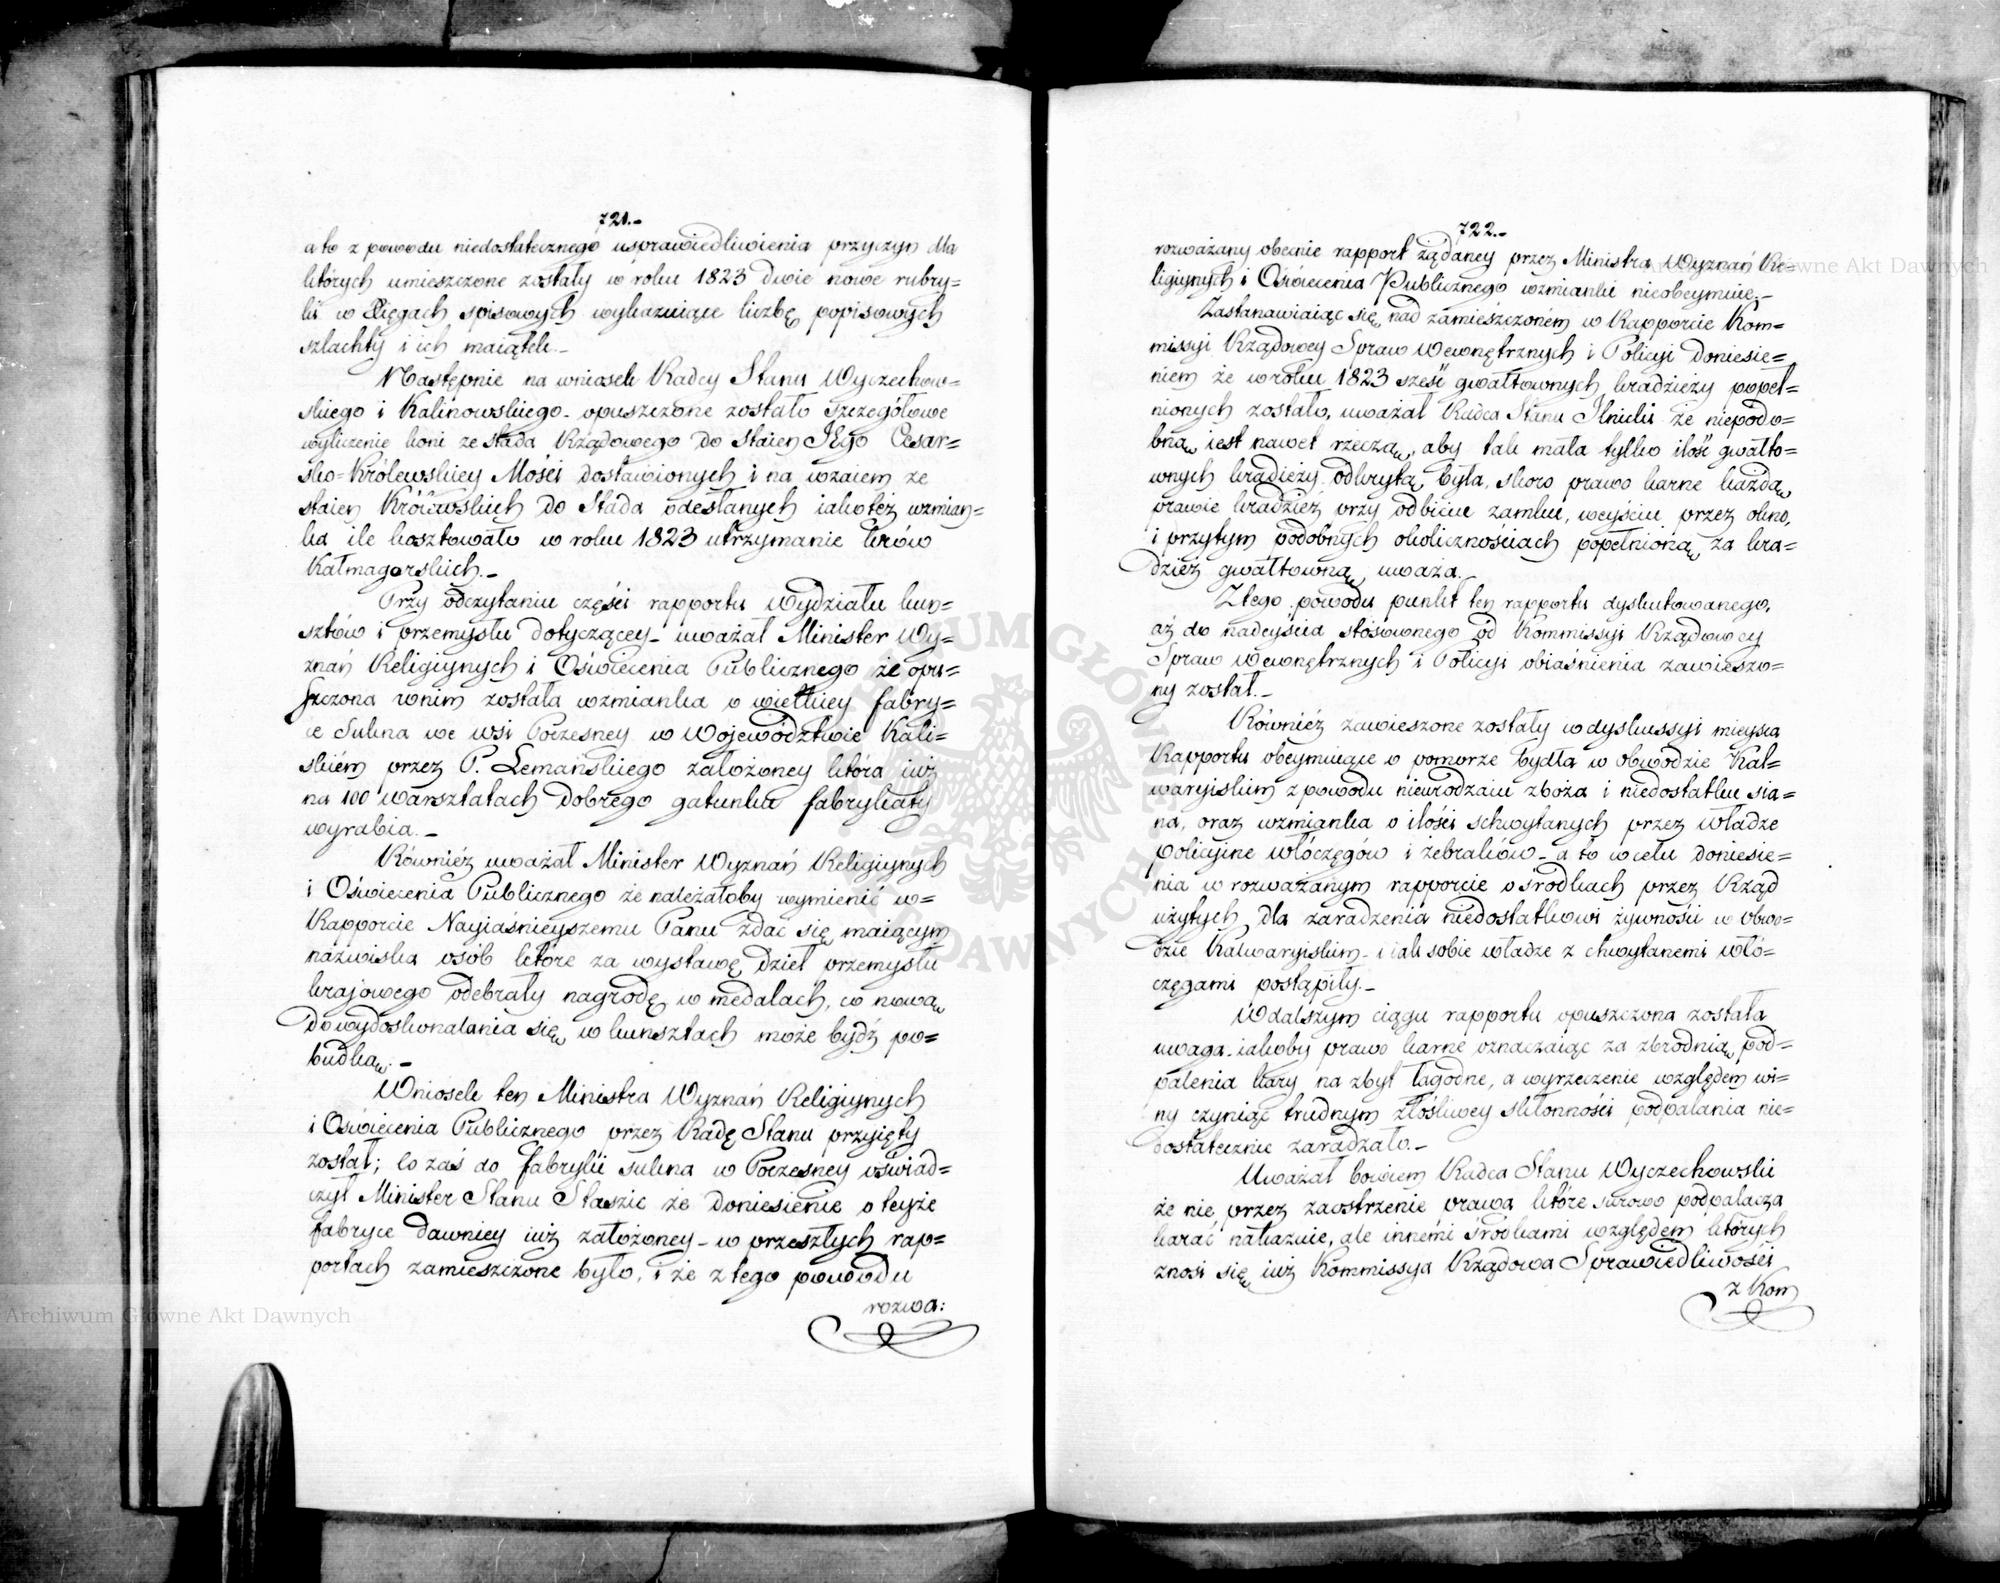 721.-
a to z powodu niedostatecznego usprawiedliwienia przyczyn dla
których umieszczone zostały w roku 1823 dwie nowe rubry=
ki w Xięgach spisowych wykazuiące liczbę popisowych
szlachty i ich maiątek.-
Następnie na wniosek Radcy Stanu Wyczechow=
skiego i Kalinowskiego - opuszczone zostało szczegółowe
wyliczenie koni ze stada Rządowego do staien JEgo Cesar=
sko=Królewskiey Mości dostawionych i na wzaiem ze
staien Królewskich do Stada odesłanych iakoteż wzmian=
ka ile kosztowało w roku 1823 utrzymanie krów
Kałmagorskich.-
Przy odczytaniu części rapportu Wydziału kun=
sztów i przemysłu dotyczącey - uważał Minister Wy=
znań Religiynych i Oświecenia Publicznego że opu=
szczona w nim została wzmianka o wielkiey fabry=
ce Sukna we wsi Poczesney w Województwie Kali=
skiém przez P. Lemańskiego założoney która iuż
na 100 warsztatach dobrego gatunku fabrykaty
wyrabia.-
Również uważał Minister Wyznań Religiynych
i Oświecenia Publicznego że należałoby wymienić w=
Rapporcie Nayiaśnieyszemu Panu zdać się maiącym
nazwiska osób które za wystawę dzieł przemysłu
krajowego odebrały nagrodę w medalach, co nową
do wydoskonalania się w kunsztach może bydź po=
budką.-
Wniosek ten Ministra Wyznań Religiynych
i Oświecenia Publicznego przez Radę Stanu przyięty
został; co zaś do fabryki sukna w Poczesney oświad=
czył Minister Stanu Staszic że doniesienie o teyże
fabryce dawniey iuż założoney - w przeszłych rap=
portach zamieszczone było, i że z tego powodu
rozwa:
722.-
rozważany obecnie rapport żądaney przez Ministra Wyznań Re=
ligiynych i Oświecenia Publicznego wzmianki nieobeymuie.-
Zastanawiaiąc się nad zamieszczoném w Rapporcie Kom=
missyi Rządowey Spraw Wewnętrznych i Policyi doniesie=
niem że w roku 1823 sześć gwałtownych kradzieży popeł=
nionych zostało, uważał Radca Stanu Ilnicki że niepodo=
bną iest nawet rzeczą, aby tak mała tylko ilość gwałto=
wnych kradzieży odkrytą była, skoro prawo karne każdą
prawie kradzież przy odbiciu zamku, weyściu przez okno,
i przytym podobnych okolicznościach popełnioną za kra=
dzież gwałtowną uważa.-
Z tego powodu punkt ten rapportu dyskutowanego,
aż do nadeyścia stósownego od Kommissyi Rządowey
Spraw Wewnętrznych i Policyi obiaśnienia zawieszo=
ny został.-
Również zawieszone zostały w dyskussyi mieysca
Rapportu obeymuiące o pomorze bydła w obwodzie Kal=
waryiskim z powodu nieurodzaiu zboża i niedostatku sia=
na, oraz wzmianka o ilości schwytanych przez władze
policyine włóczęgów i żebraków - a to w celu doniesie=
nia w rozważanym rapporcie o środkach przez Rząd
użytych dla zaradzenia niedostatkowi żywności w obwo=
dzie Kalwaryiskim - i iak sobie władze z chwytanemi włó=
częgami postąpiły.-
W dalszym ciągu rapportu opuszczona została
uwaga - iakoby prawo karne oznaczaiąc za zbrodnią pod=
palenia kary na zbyt łagodne, a wyrzeczenie względem wi=
ny czyniąc trudnym złośliwey skłonności podpalania nie=
dostatecznie zaradzało.-
Uważał bowiem Radca Stanu Wyczechowski
że nie przez zaostrzenie prawa które surowo podpalacza
karać nakazuie, ale innémi środkami względem których
znosi się iuż Kommissya Rządowa Sprawiedliwości
z Kom
Archiwum Główne Akt Dawnych
Archiwum Główne Akt Dawnych
ARCHIWUM GŁÓWNE AKT DAWNYCH